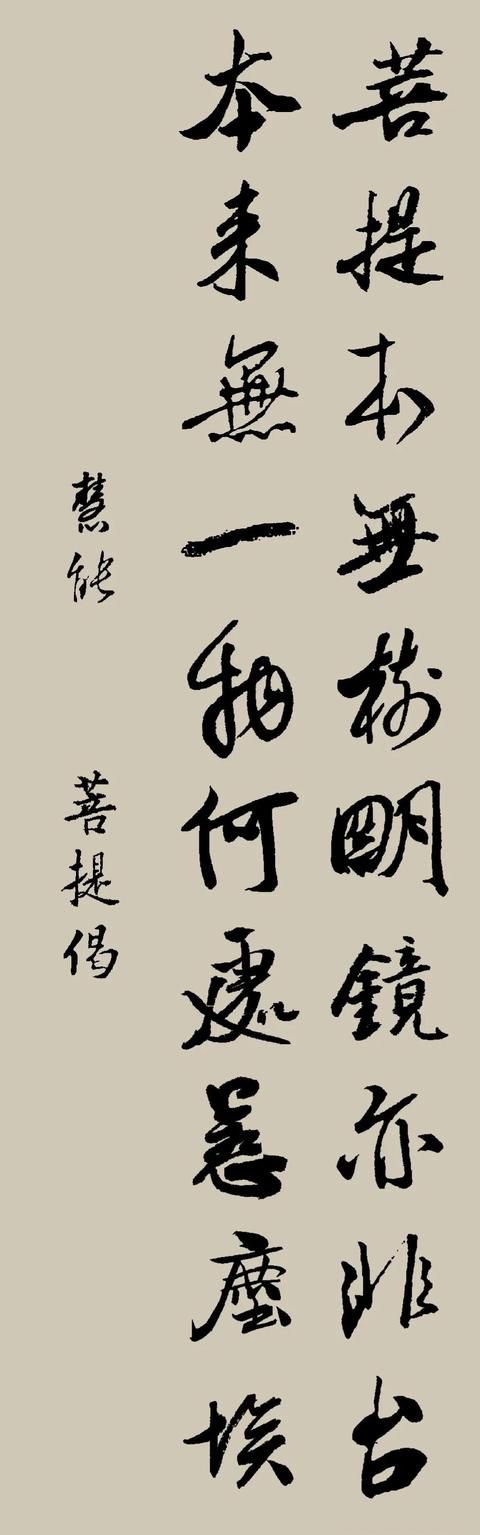 菩提本無樹明鏡亦非台
本来無一物何處惹塵埃
慧能 菩提偈